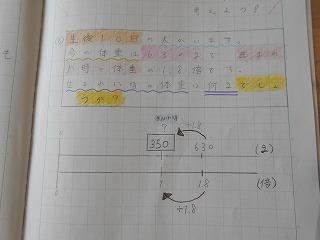 生後10日の犬がいます。
今の体重は630gで、生まれ
た時の体重の1.8倍です。
生まれた時の体重は何gでしょ
うか?
÷1.8
?
350
630
(g)
0
1
1.8
(倍)
÷1.8